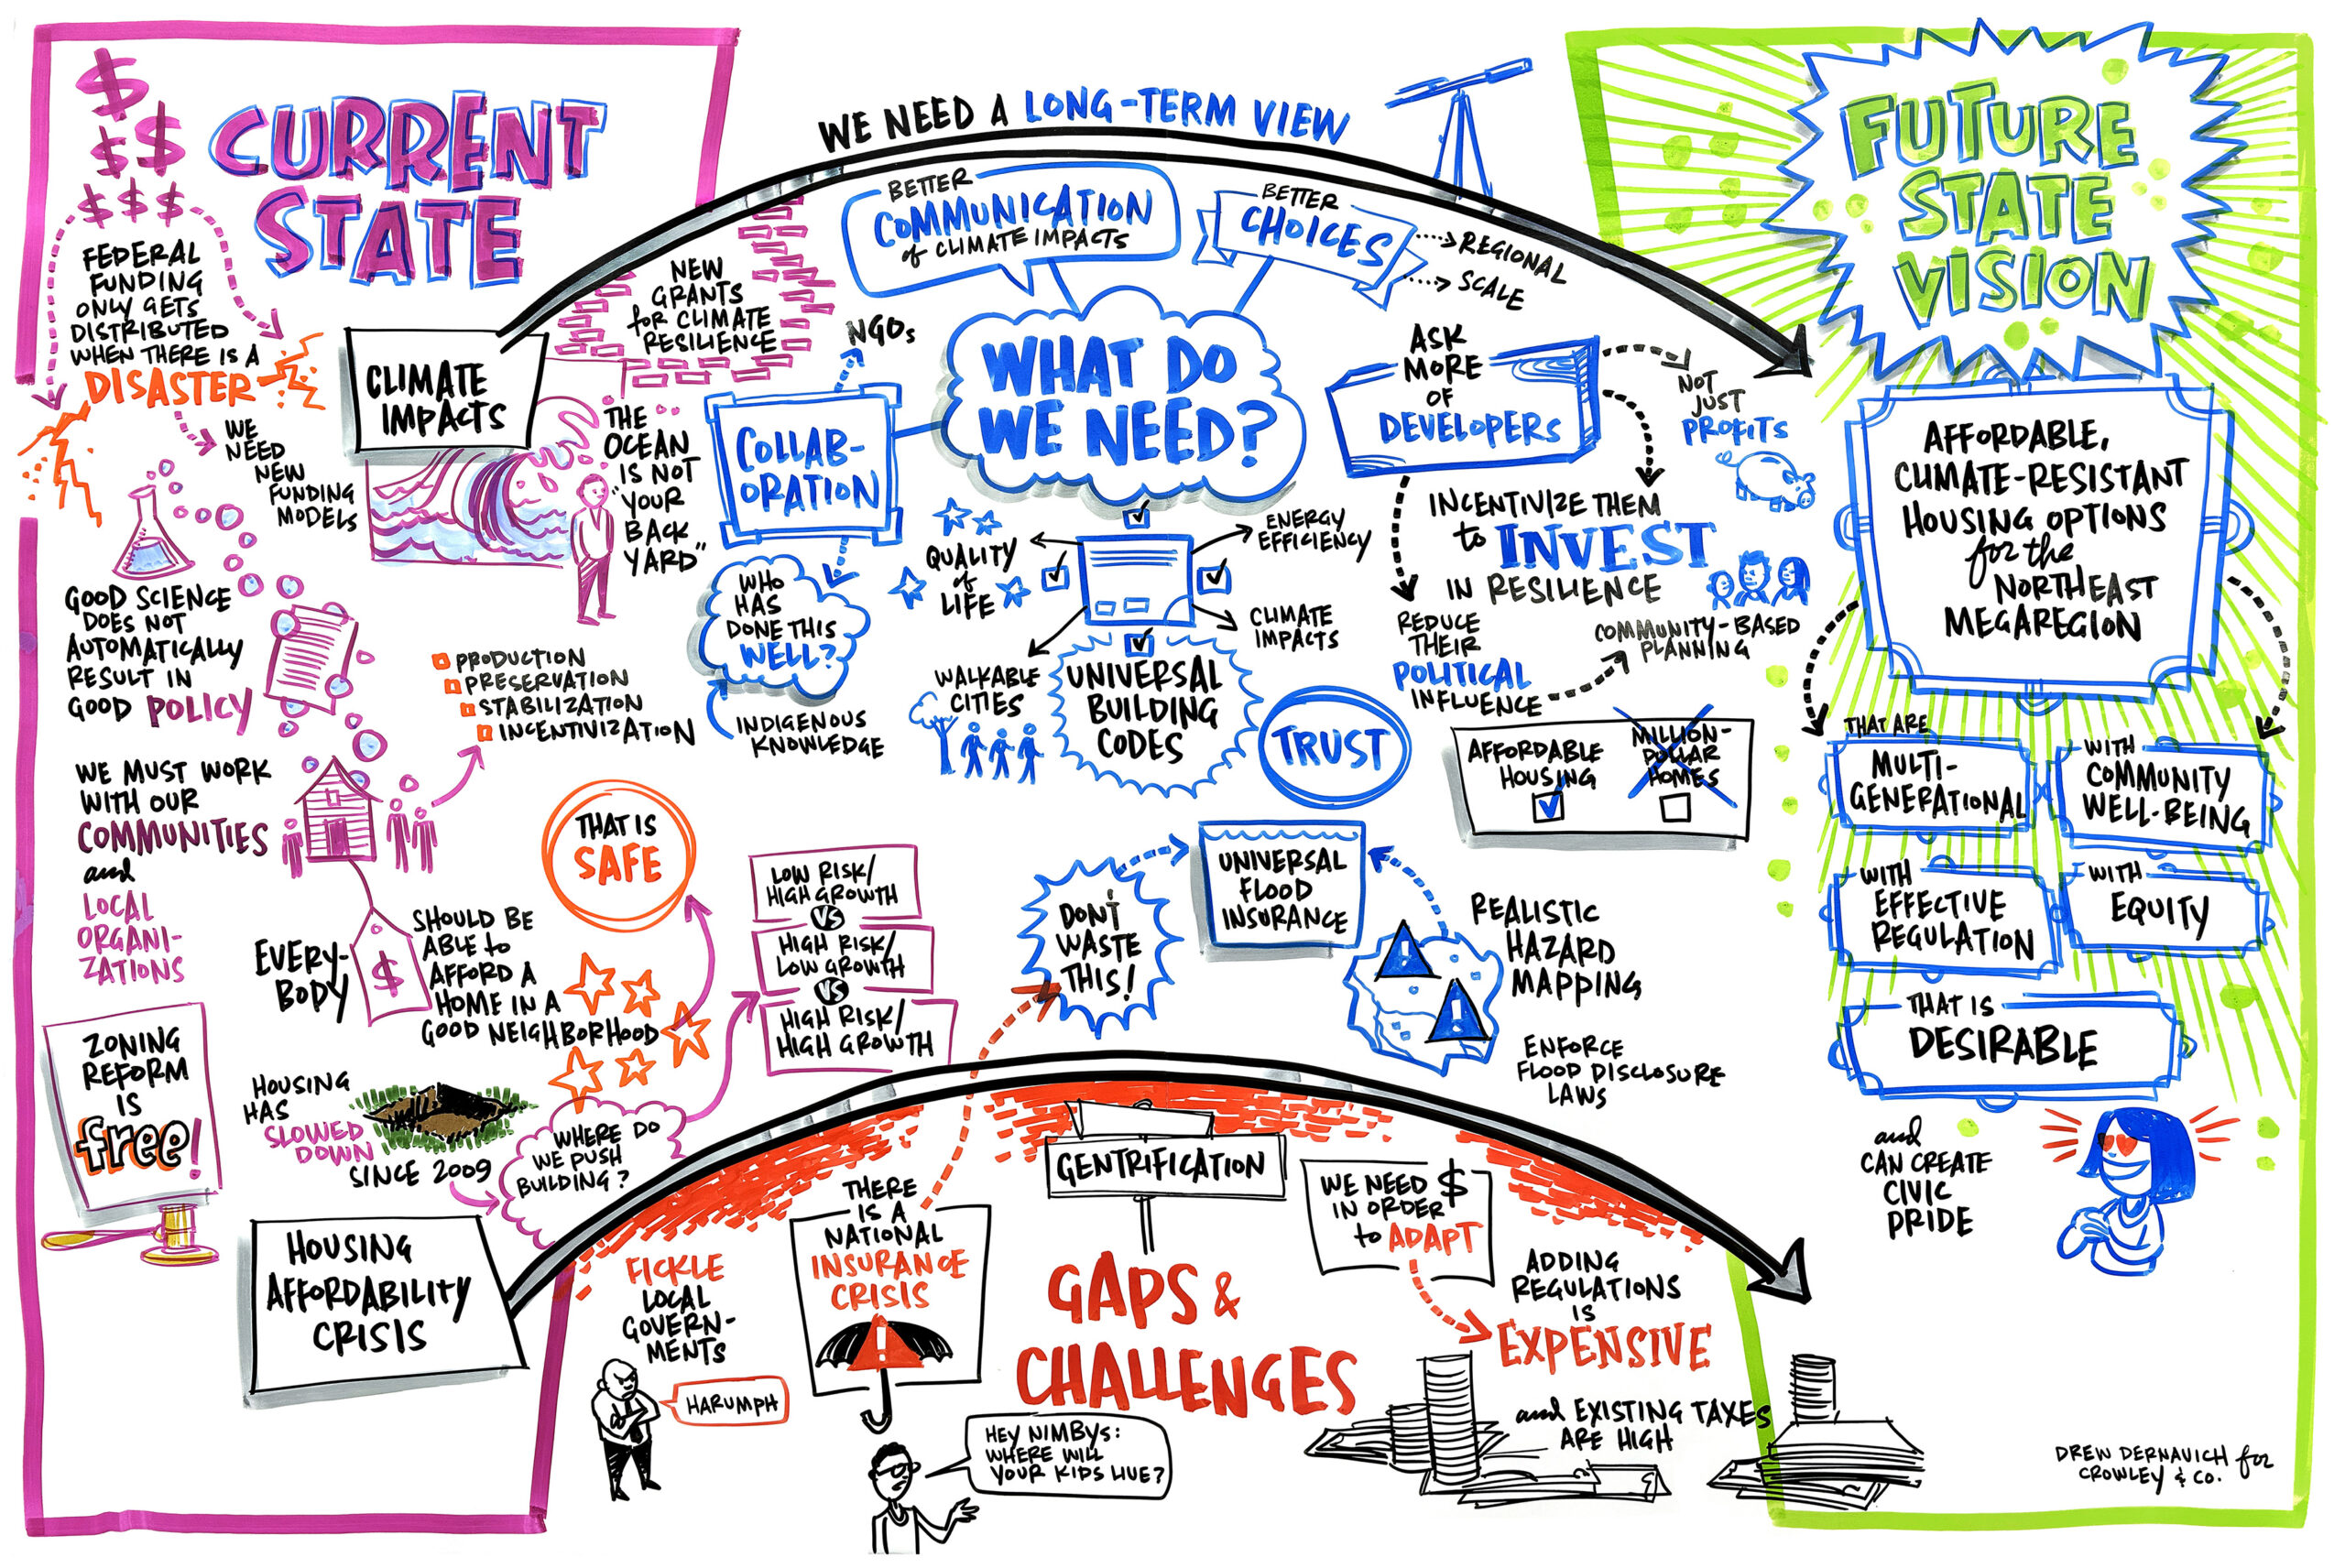 CURRENT
STATE
$
$ $
$ $ $
FEDERAL
FUNDING
ONLY GETS
DISTRIBUTED
WHEN THERE IS A
DISASTER
WE
NEED
NEW
FUNDING
MODELS
GOOD SCIENCE
DOES NOT
AUTOMATICALLY
RESULT IN
GOOD POLICY
WE MUST WORK
WITH OUR
COMMUNITIES
and
LOCAL
ORGANI-
ZATIONS
PRODUCTION
PRESERVATION
STABILIZATION
INCENTIVIZATION
ZONING
REFORM
IS
free!
EVERY-
BODY
$
SHOULD BE
ABLE to
AFFORD A
HOME IN A
GOOD NEIGHBORHOOD
THAT IS
SAFE
HOUSING
HAS
SLOWED
DOWN
SINCE 2009
WHERE DO
WE PUSH
BUILDING?
LOW RISK/
HIGH GROWTH
VS
HIGH RISK/
LOW GROWTH
VS
HIGH RISK/
HIGH GROWTH
CLIMATE
IMPACTS
NEW
GRANTS
for CLIMATE
RESILIENCE
THE
OCEAN
IS NOT
"YOUR
BACK
YARD"
HOUSING
AFFORDABILITY
CRISIS
WE NEED A LONG-TERM VIEW
BETTER
COMMUNICATION
of CLIMATE IMPACTS
BETTER
CHOICES
REGIONAL
SCALE
WHAT DO
WE NEED?
NGOs
COLLAB-
ORATION
WHO
HAS
DONE THIS
WELL?
INDIGENOUS
KNOWLEDGE
QUALITY
of
LIFE
ENERGY
EFFICIENCY
CLIMATE
IMPACTS
WALKABLE
CITIES
UNIVERSAL
BUILDING
CODES
TRUST
ASK
MORE
OF
DEVELOPERS
NOT
JUST
PROFITS
INCENTIVIZE THEM
to INVEST
IN RESILIENCE
REDUCE
THEIR
POLITICAL
INFLUENCE
COMMUNITY-BASED
PLANNING
AFFORDABLE
HOUSING
MILLION-
DOLLAR
HOMES
DON'T
WASTE
THIS!
UNIVERSAL
FLOOD
INSURANCE
REALISTIC
HAZARD
MAPPING
ENFORCE
FLOOD DISCLOSURE
LAWS
GAPS &
CHALLENGES
FICKLE
LOCAL
GOVERN-
MENTS
HARUMPH
THERE
IS A
NATIONAL
INSURANCE
CRISIS
!
HEY NIMBYS:
WHERE WILL
YOUR KIDS LIVE?
GENTRIFICATION
WE NEED $
IN ORDER
to ADAPT
ADDING
REGULATIONS
IS
EXPENSIVE
and EXISTING TAXES
ARE HIGH
FUTURE
STATE
VISION
AFFORDABLE,
CLIMATE-RESISTANT
HOUSING OPTIONS
for the
NORTHEAST
MEGAREGION
THAT ARE
MULTI-
GENERATIONAL
WITH
COMMUNITY
WELL-BEING
WITH
EFFECTIVE
REGULATION
WITH
EQUITY
THAT IS
DESIRABLE
and
CAN CREATE
CIVIC
PRIDE
DREW DERNAVICH for
CROWLEY & CO.